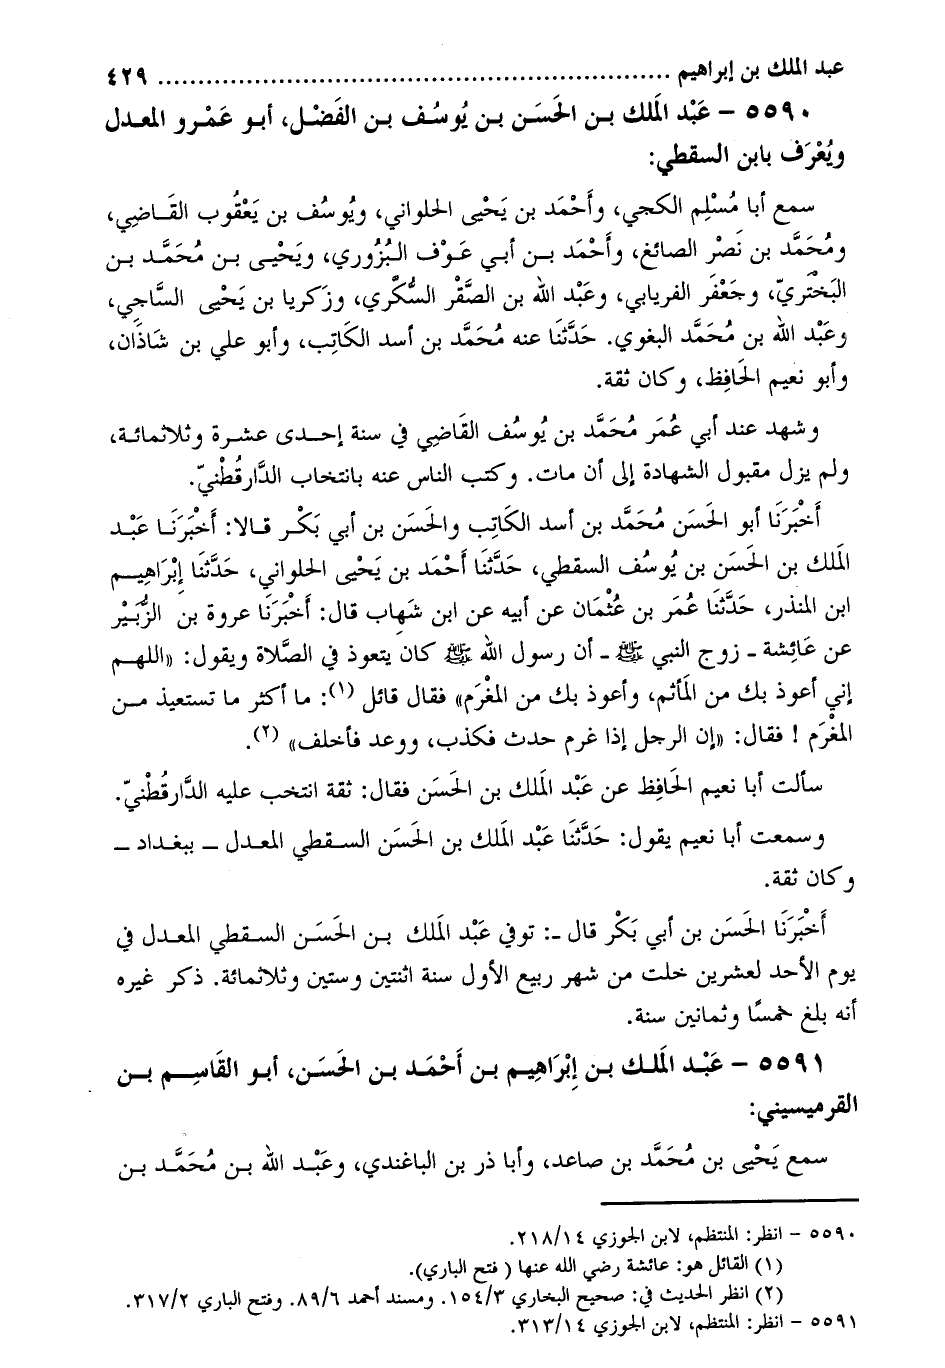 عبد الملك بن إبراهيم ................................................................ ٤٢٩
٥٥٩٠ – عَبْد الَملك بـن الحَسَن بـن يُوسُف بـن الفَضْل، أبـو عَمْرو المعدل
ويُعْرَف بابن السقطي:
سمع أبا مُسْلِم الكجي، وأَحْمَد بن يَحْيى الحلواني، ويُوسُف بن يَعْقُوب القَـاضِي،
ومُحَمَّد بن نَصْر الصائغ، وأَحْمَد بـن أبـي عَـوْف الـبُزُوري، ويَحْيـى بـن مُحَمَّـد بـن
البَخْتَريّ، وجَعْفَر الفريابي، وعَبْد الله بن الصَّقْر السُّكَّري، وزكريا بن يَحْيى السَّاجِي،
وعَبْد الله بن مُحَمَّد البغوي. حَدَّثنَا عنه مُحَمَّد بن أسد الكَاتِب، وأبو علي بن شَاذَان،
وأبو نعيم الحَافِظ، وكان ثقة.
وشهد عند أبي عُمَر مُحَمَّد بن يُوسُف القَاضِي في سنة إحـدى عشـرة وثـلاثمائـة،
ولم يزل مقبول الشهادة إلى أن مات. وكتب الناس عنه بانتخاب الدَّارقُطْنيّ.
أَخْبَرَنَا أبو الحَسَن مُحَمَّد بن أسد الكَاتِب والحَسَن بن أبي بَكْـر قـالا: أَخْبَرَنَـا عَبْـد
الَملك بن الحَسَن بن يُوسُف السقطي، حَدَّثنَا أَحْمَد بن يَحْيى الحلواني، حَدَّثنَا إبْرَاهِيـم
ابن المنذر، حَدَّثنَا عُمَر بن عُثْمَان عن أبيه عن ابن شَهاب قال: أَخْبَرَنَا عروة بن الزُّبَيْر
عن عَائِشة ـ زوج النبي ﷺ ـ أن رسول الله ﷺ كان يتعوذ في الصَّلاة ويقول: «اللهم
إني أعوذ بك من المَأثم، وأعوذ بك من المغْرَم» فقال قائل (١): ما أكثر ما تستعيذ مـن
المغْرَم ! فقال: «إن الرجل إذا غرم حدث فكذب، ووعد فأخلف» (٢).
سألت أبا نعيم الحَافِظ عن عَبْد الَملك بن الحَسَن فقال: ثقة انتخب عليه الدَّارقُطْنيّ.
وسمعت أبا نعيم يقول: حَدَّثنَا عَبْد الَملك بن الحَسَن السـقطي المعـدل – ببغـداد –
وكان ثقة.
أَخْبَرَنَا الحَسَن بن أبي بَكْر قال ـ: توفي عَبْد الَملك بـن الحَسَـن السـقطي المعـدل في
يوم الأحد لعشرين خلت من شهر ربيع الأول سنة اثنتين وستين وثلاثمائة. ذكر غيره
أنه بلغ خمسًا وثمانين سنة.
٥٥٩١ – عَبْـد الَملـك بـن إبْرَاهِيم بـن أَحْمَد بـن الحَسَن، أبـو القَاسِـم بـن
القرميسيني:
سمع يَحْيى بن مُحَمَّد بن صاعد، وأبا ذر بن الباغندي، وعَبْـد الله بـن مُحَمَّـد بـن
٥٥٩٠ – انظر: المنتظم، لابن الجوزي ٢١٨/١٤.
(١) القائل هو: عائشة رضي الله عنها ( فتح الباري).
(٢) انظر الحديث في: صحيح البخاري ١٥٤/٣. ومسند أحمد ٨٩/٦. وفتح الباري ٣١٧/٢.
٥٥٩١ – انظر: المنتظم، لابن الجوزي ٣١٣/١٤.